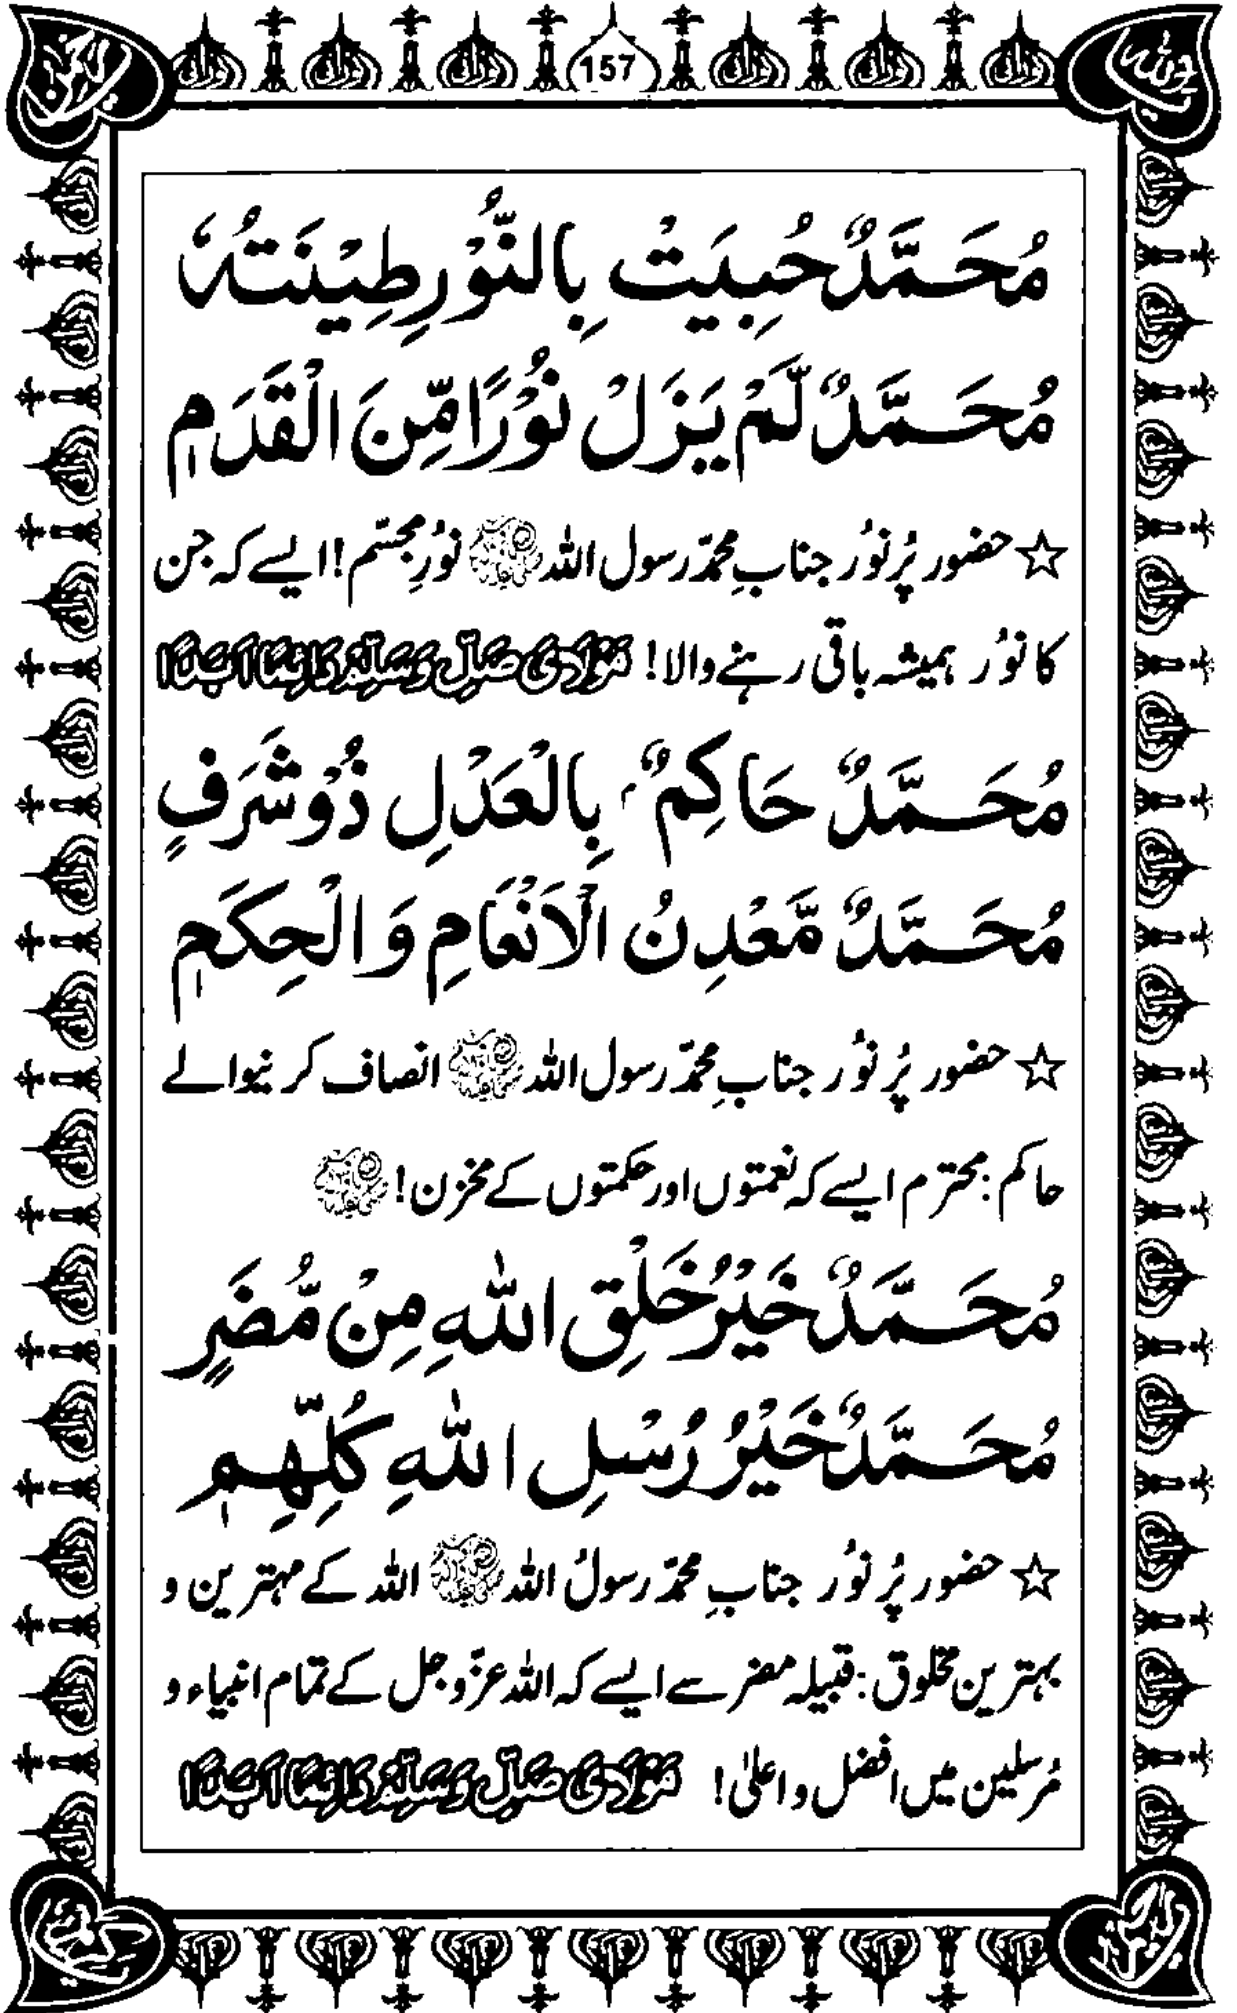 157
مُحَمَّدٌ حُبِيَتْ بِالنُّوْرِ طِيْنَتُهٗ
مُحَمَّدٌ لَّمْ يَزَلْ نُوْرًا مِّنَ الْقَدَمِ
☆ حضور پُر نوُر جنابِ محمّد رسول اللہ ﷺ نوُرِ مجسّم! ایسے کہ جن
کا نوُر ہمیشہ باقی رہنے والا! مَوْلَایَ صَلِّ وَسَلِّمْ دَائِمًا اَبَدًا
مُحَمَّدٌ حَاكِمٌ بِالْعَدْلِ ذُوْ شَرَفٍ
مُحَمَّدٌ مَّعْدِنُ الْاَنْعَامِ وَالْحِكَمِ
☆ حضور پُر نوُر جنابِ محمّد رسول اللہ ﷺ انصاف کرنیوالے
حاکم: محترم ایسے کہ نعمتوں اور حکمتوں کے مخزن! ﷺ
مُحَمَّدٌ خَيْرُ خَلْقِ اللهِ مِنْ مُّضَرٍ
مُحَمَّدٌ خَيْرُ رُسْلِ اللهِ كُلِّهِمِ
☆ حضور پُر نوُر جنابِ محمّد رسولُ اللہ ﷺ اللہ کے مہترین و
بہترین مخلوق: قبیلہ مضر سے ایسے کہ اللہ عزّوجل کے تمام انبیاء و
مُرسلین میں افضل و اعلیٰ! مَوْلَایَ صَلِّ وَسَلِّمْ دَائِمًا اَبَدًا